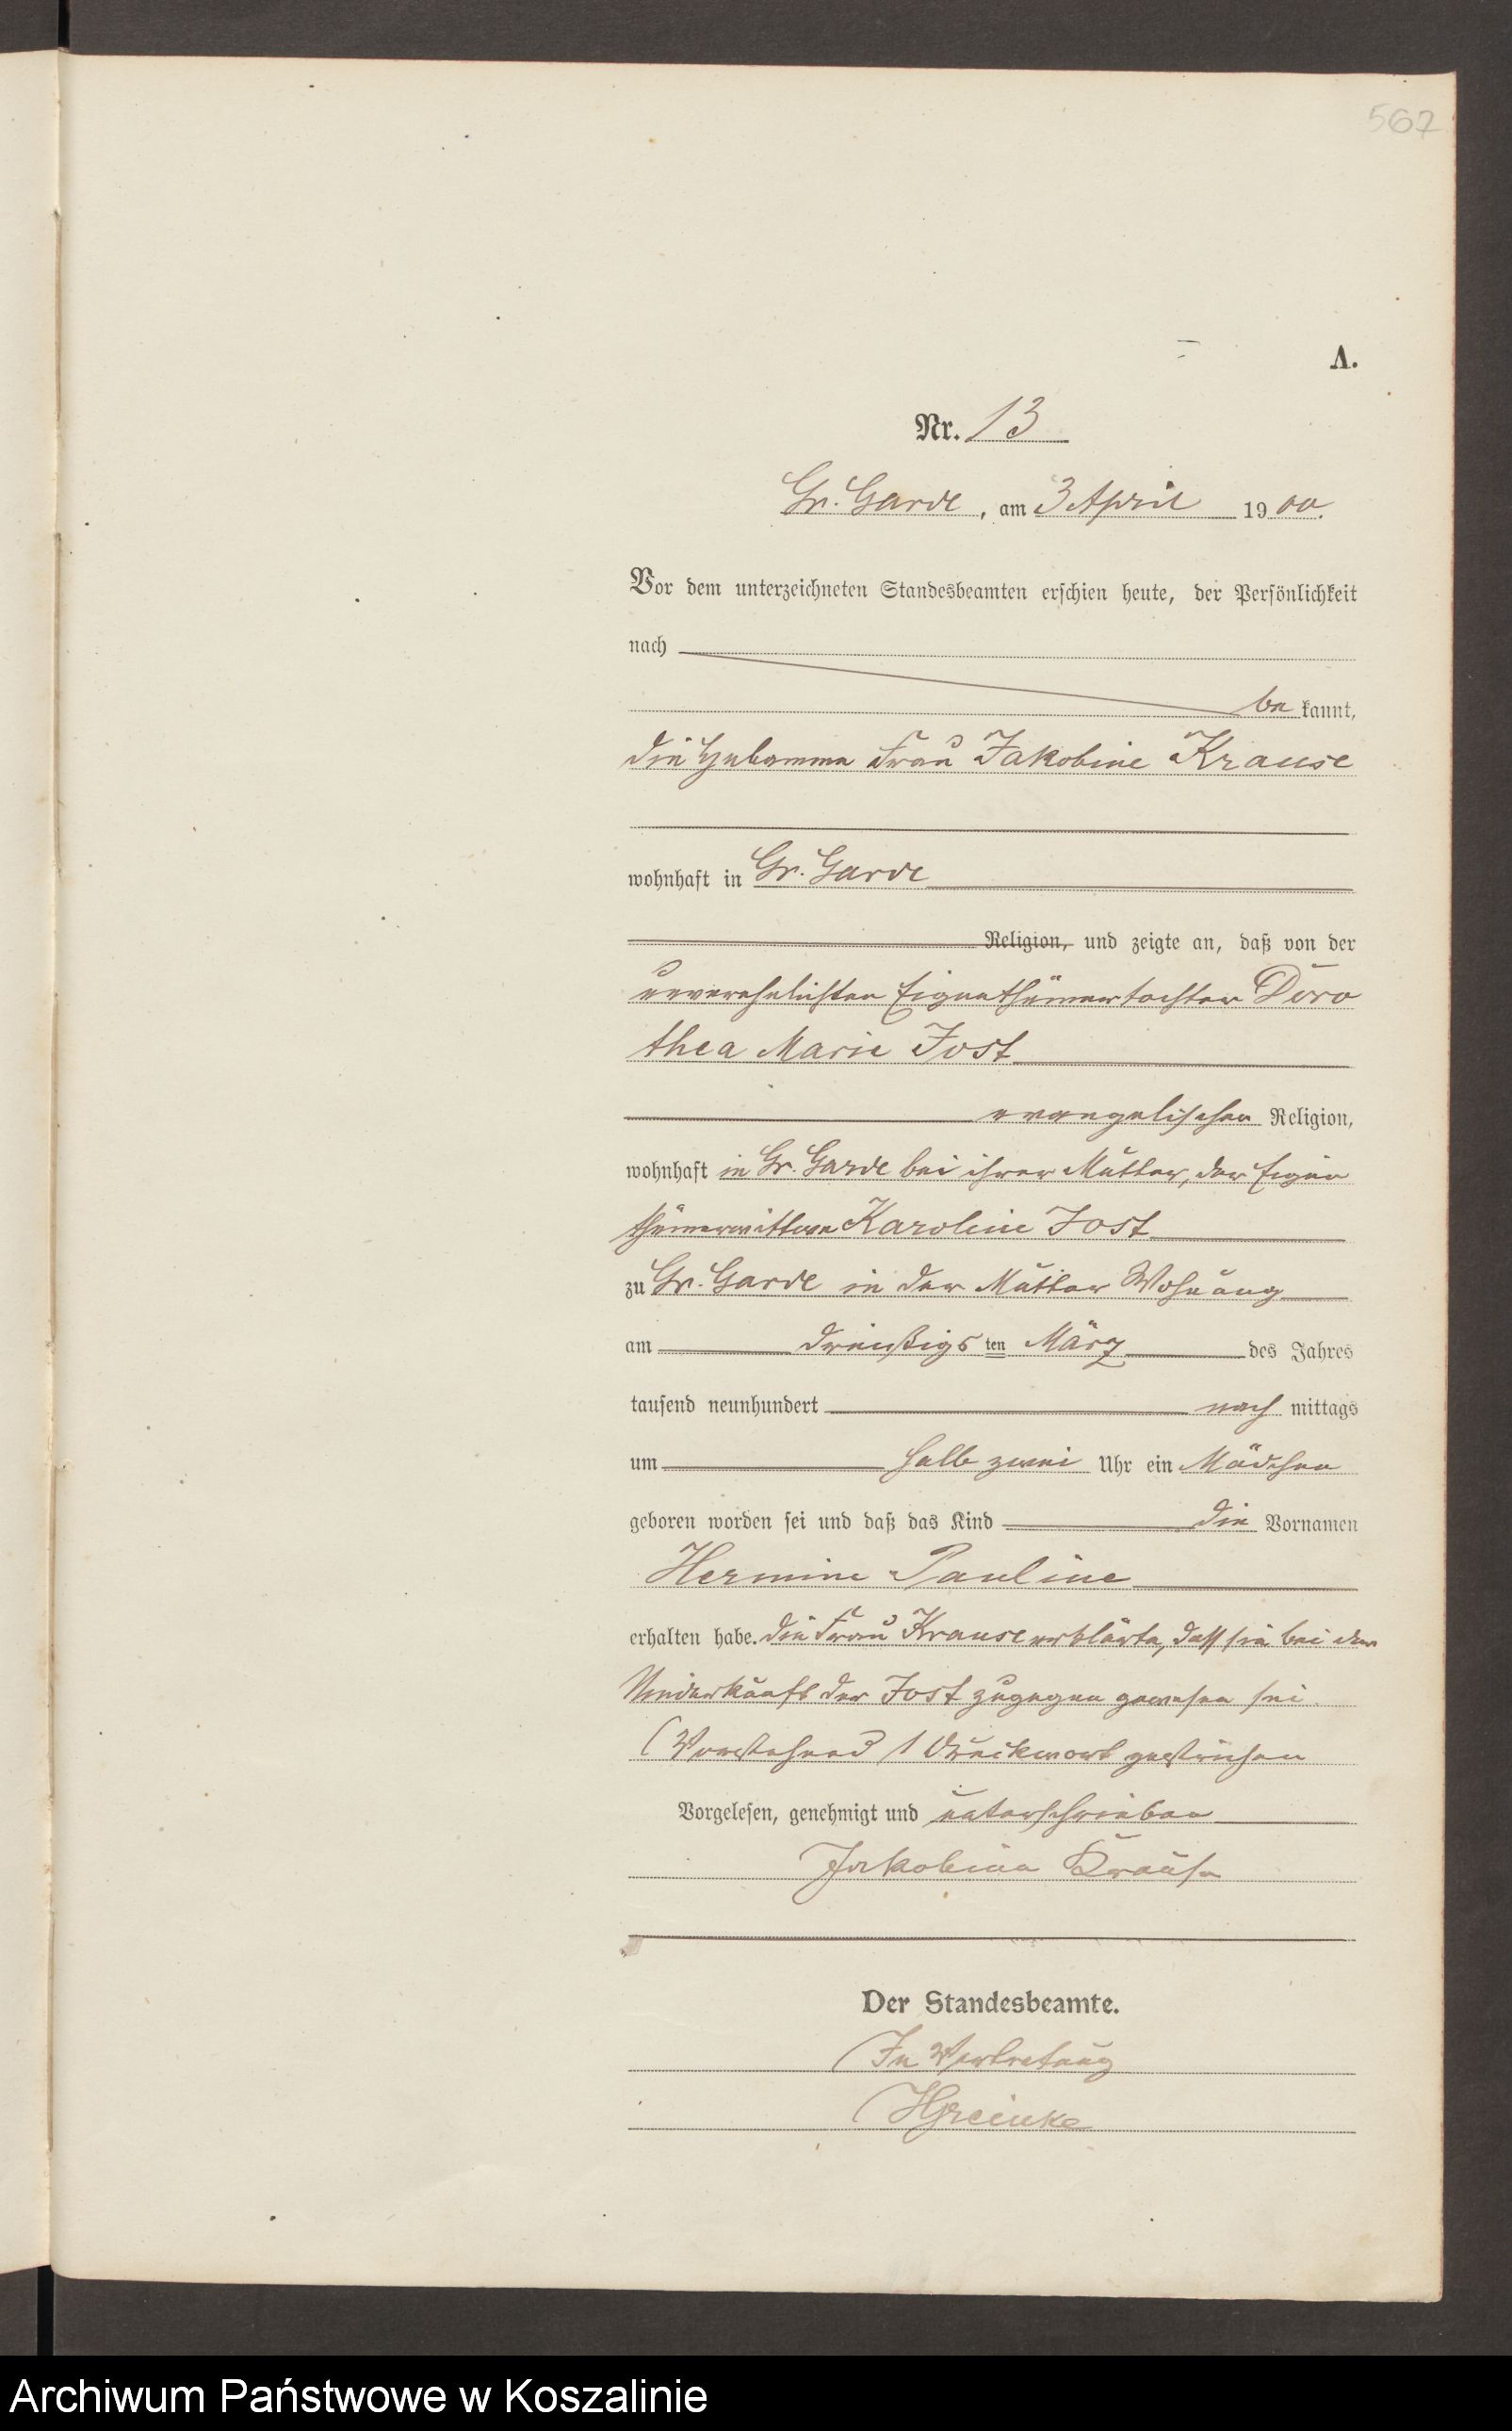 567
A.
Nr. 13
Gr. Garde, am 3 April 1900.
Vor dem unterzeichneten Standesbeamten erschien heute, der Persönlichkeit
nach
be kannt,
die Hebamme Frau Jakobine Krause
wohnhaft in Gr. Garde
Religion, und zeigte an, daß von der
unverehelichten Eigenthümertochter Doro
thea Marie Jost
evangelischer Religion,
wohnhaft in Gr. Garde bei ihrer Mutter, der Eigen
thümerwittwe Karoline Jost
zu Gr. Garde in der Mutter Wohnung
am dreißigsten März des Jahres
tausend neunhundert nach mittags
um halb zwei Uhr ein Mädchen
geboren worden sei und daß das Kind die Vornamen
Hermine Pauline
erhalten habe. Die Frau Krause erklärte, daß sie bei der
Niederkunft der Jost zugegen gewesen sei.
(Vorstehend 1 Druckwort gestrichen
Vorgelesen, genehmigt und unterschrieben
Jakobine Krause
Der Standesbeamte.
In Vertretung
HGreinke
Archiwum Państwowe w Koszalinie